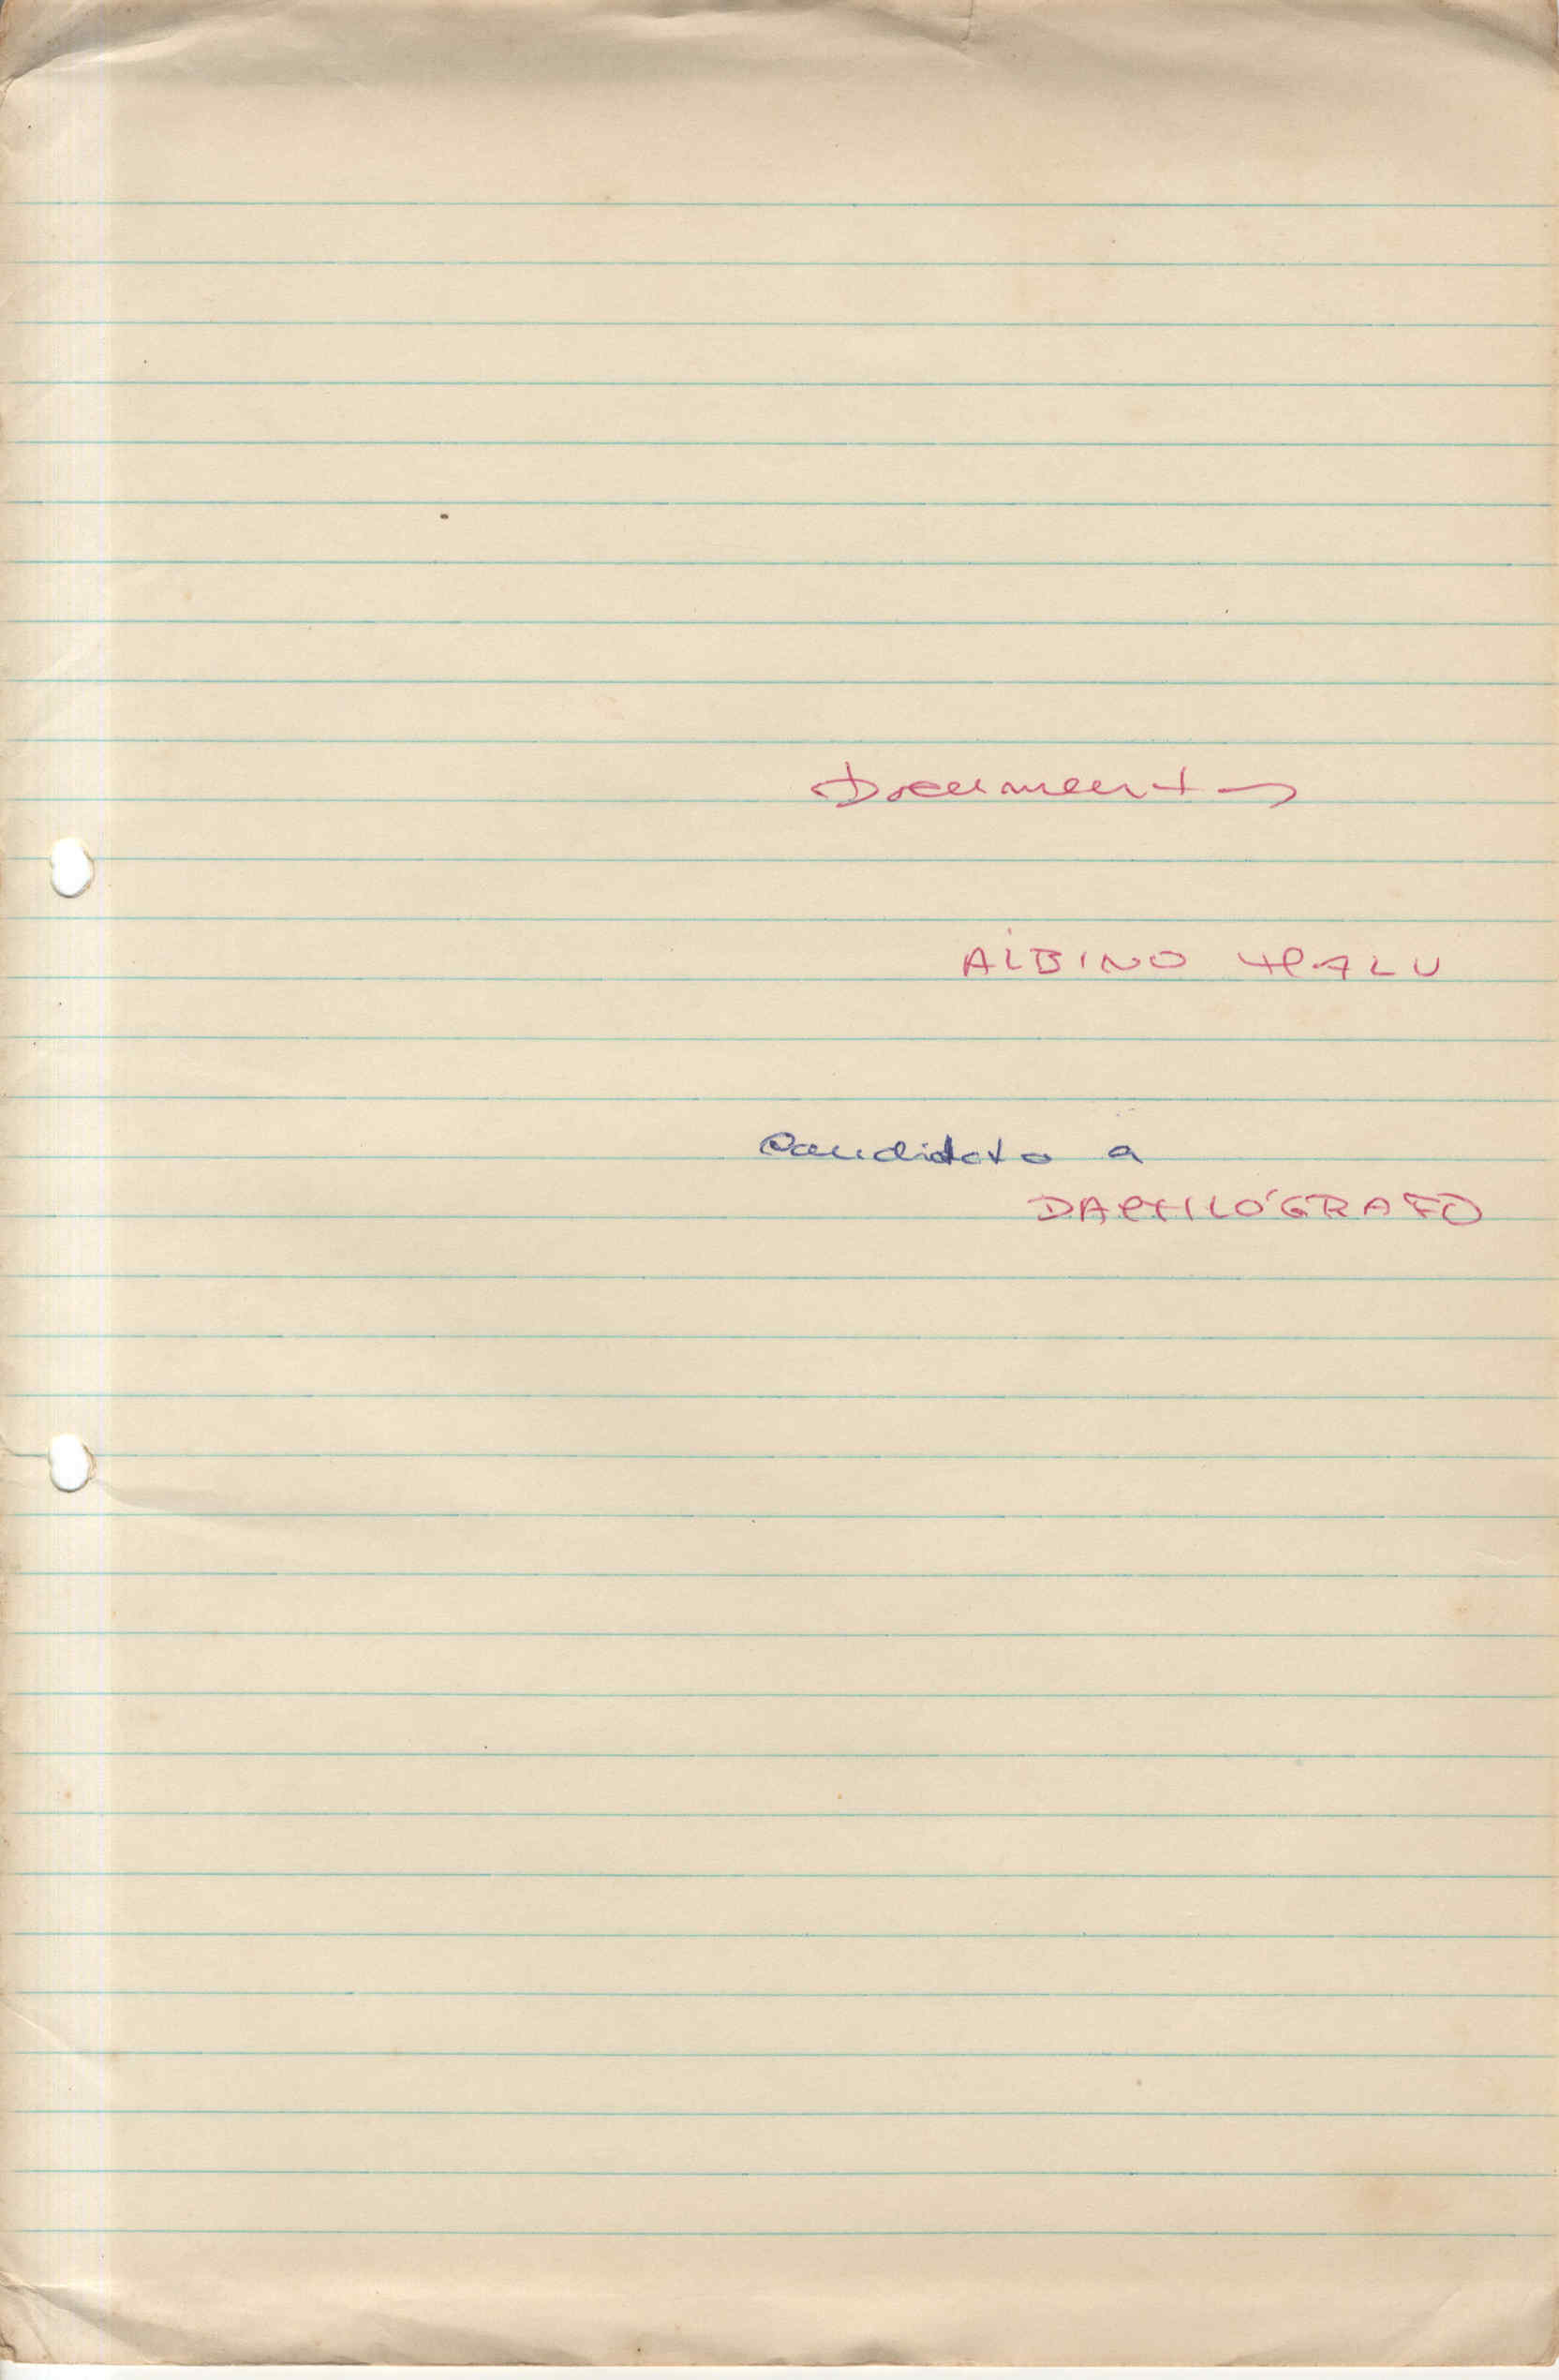 Documentos
ALBINO
Candidato a
DACTILÓGRAFO